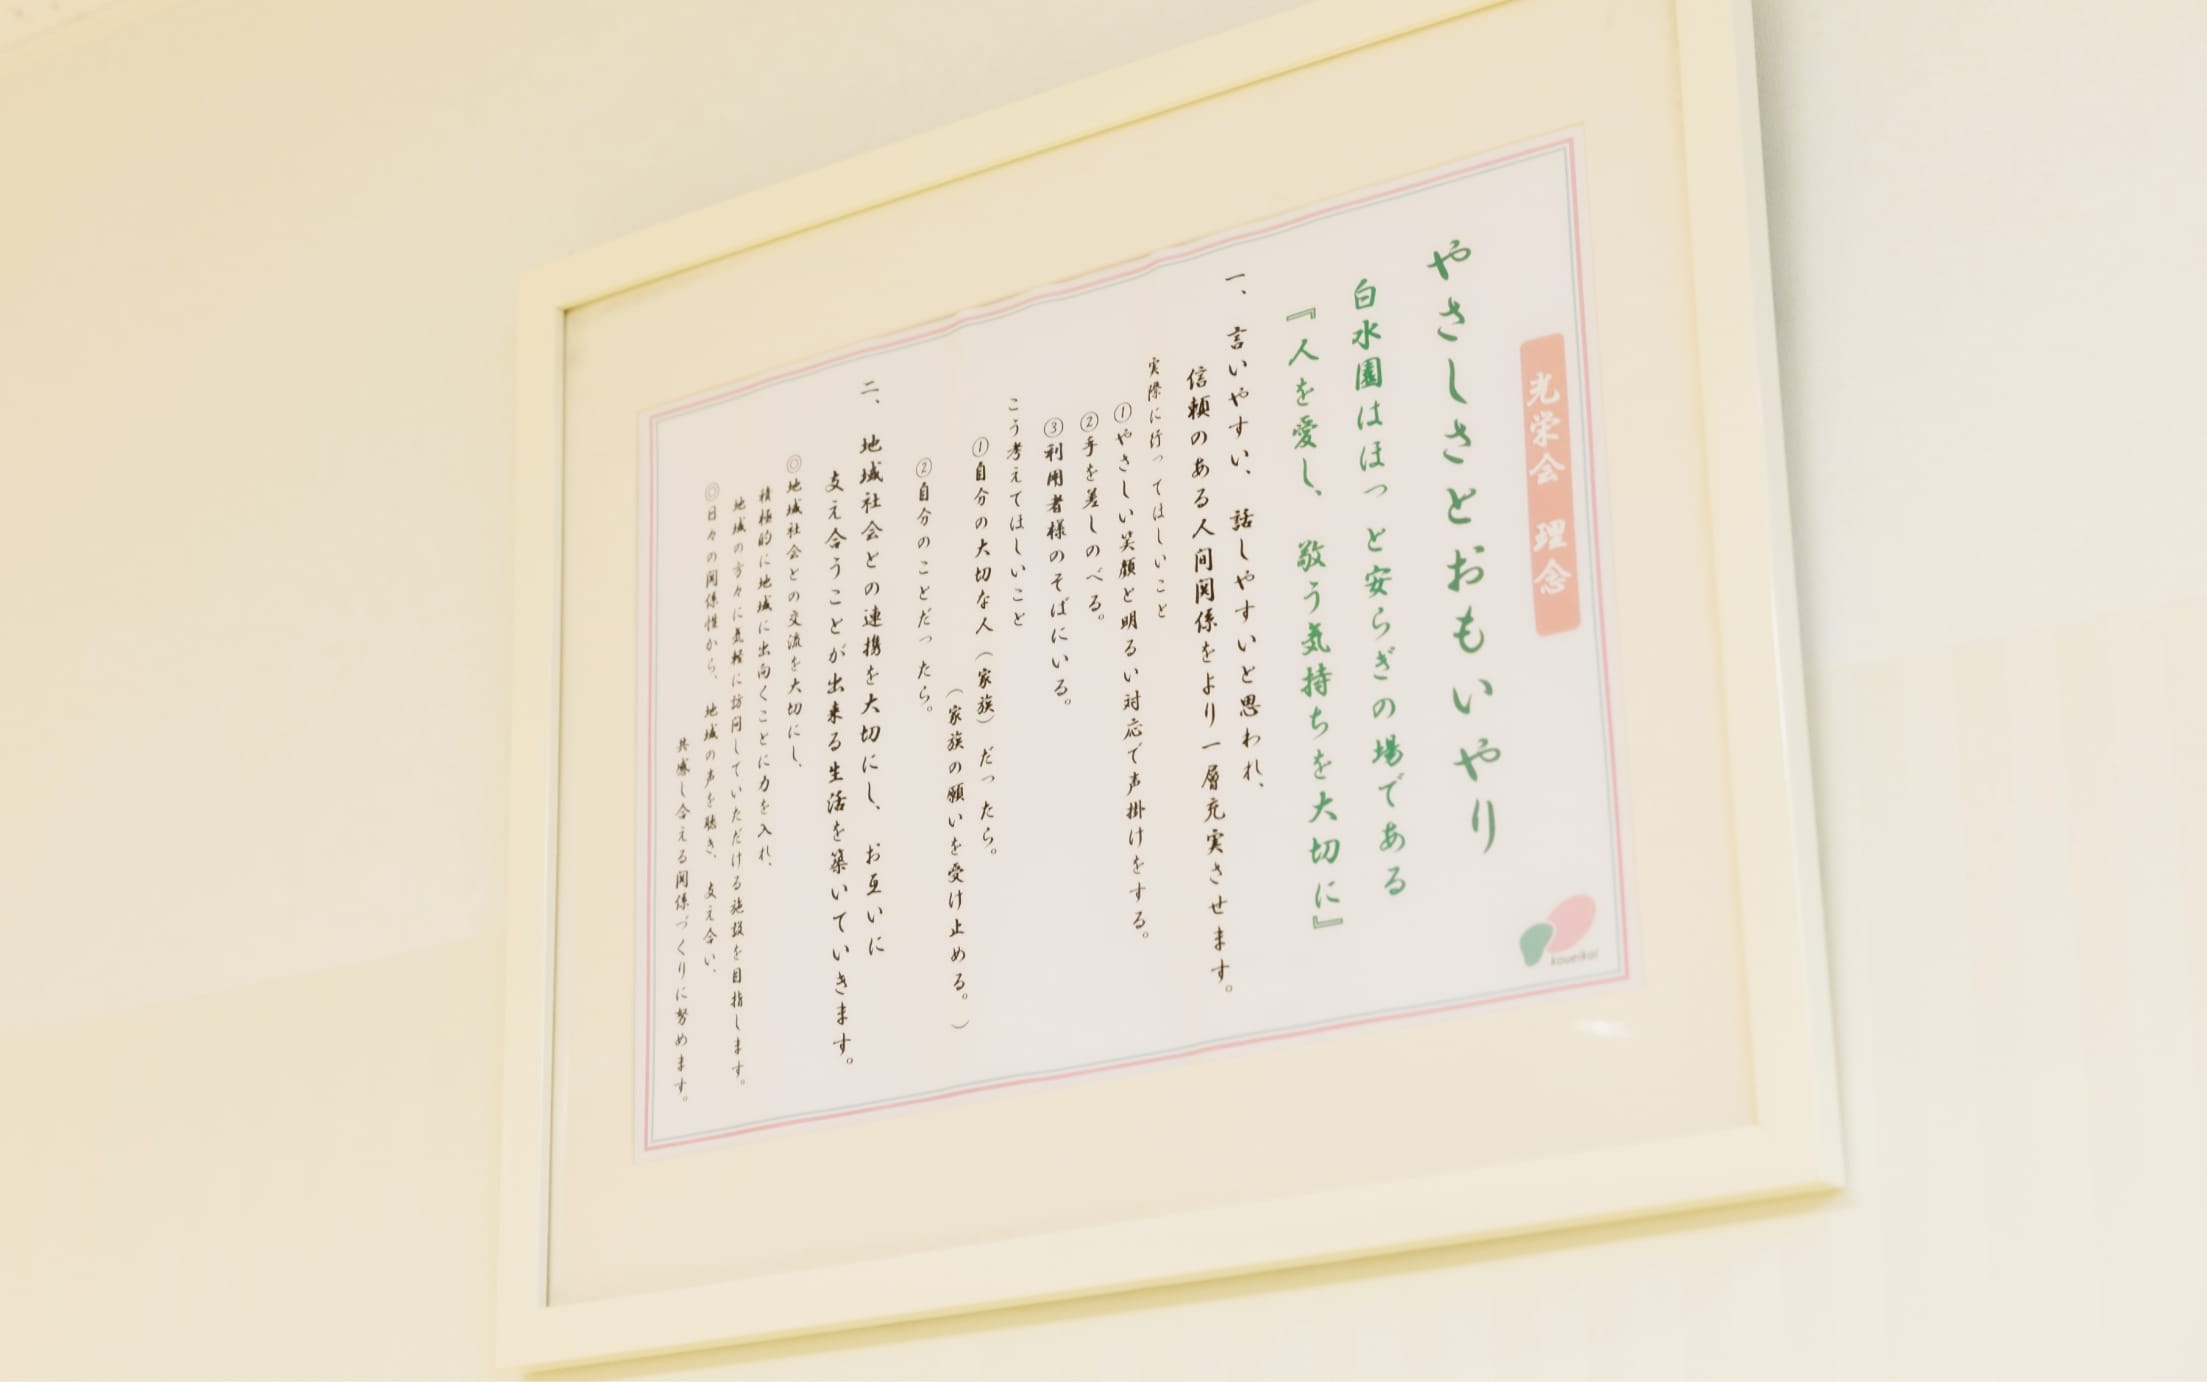 光栄会 理念
やさしさとおもいやり
白水園はほっと安らぎの場である
『人を愛し、敬う気持ちを大切に』
一、言いやすい、話しやすいと思われ、
信頼のある人間関係をより一層充実させます。
実際に行ってほしいこと
①やさしい笑顔と明るい対応で声掛けをする。
②手を差しのべる。
③利用者様のそばにいる。
こう考えてほしいこと
①自分の大切な人（家族）だったら。
（家族の願いを受け止める。）
②自分のことだったら。
二、地域社会との連携を大切にし、お互いに
支え合うことが出来る生活を築いていきます。
◎地域社会との交流を大切にし、
積極的に地域に出向くことに力を入れ、
地域の方々に気軽に訪問していただける施設を目指します。
◎日々の関係性から、地域の声を聴き、支え合い、
共感し合える関係づくりに努めます。
koueikai